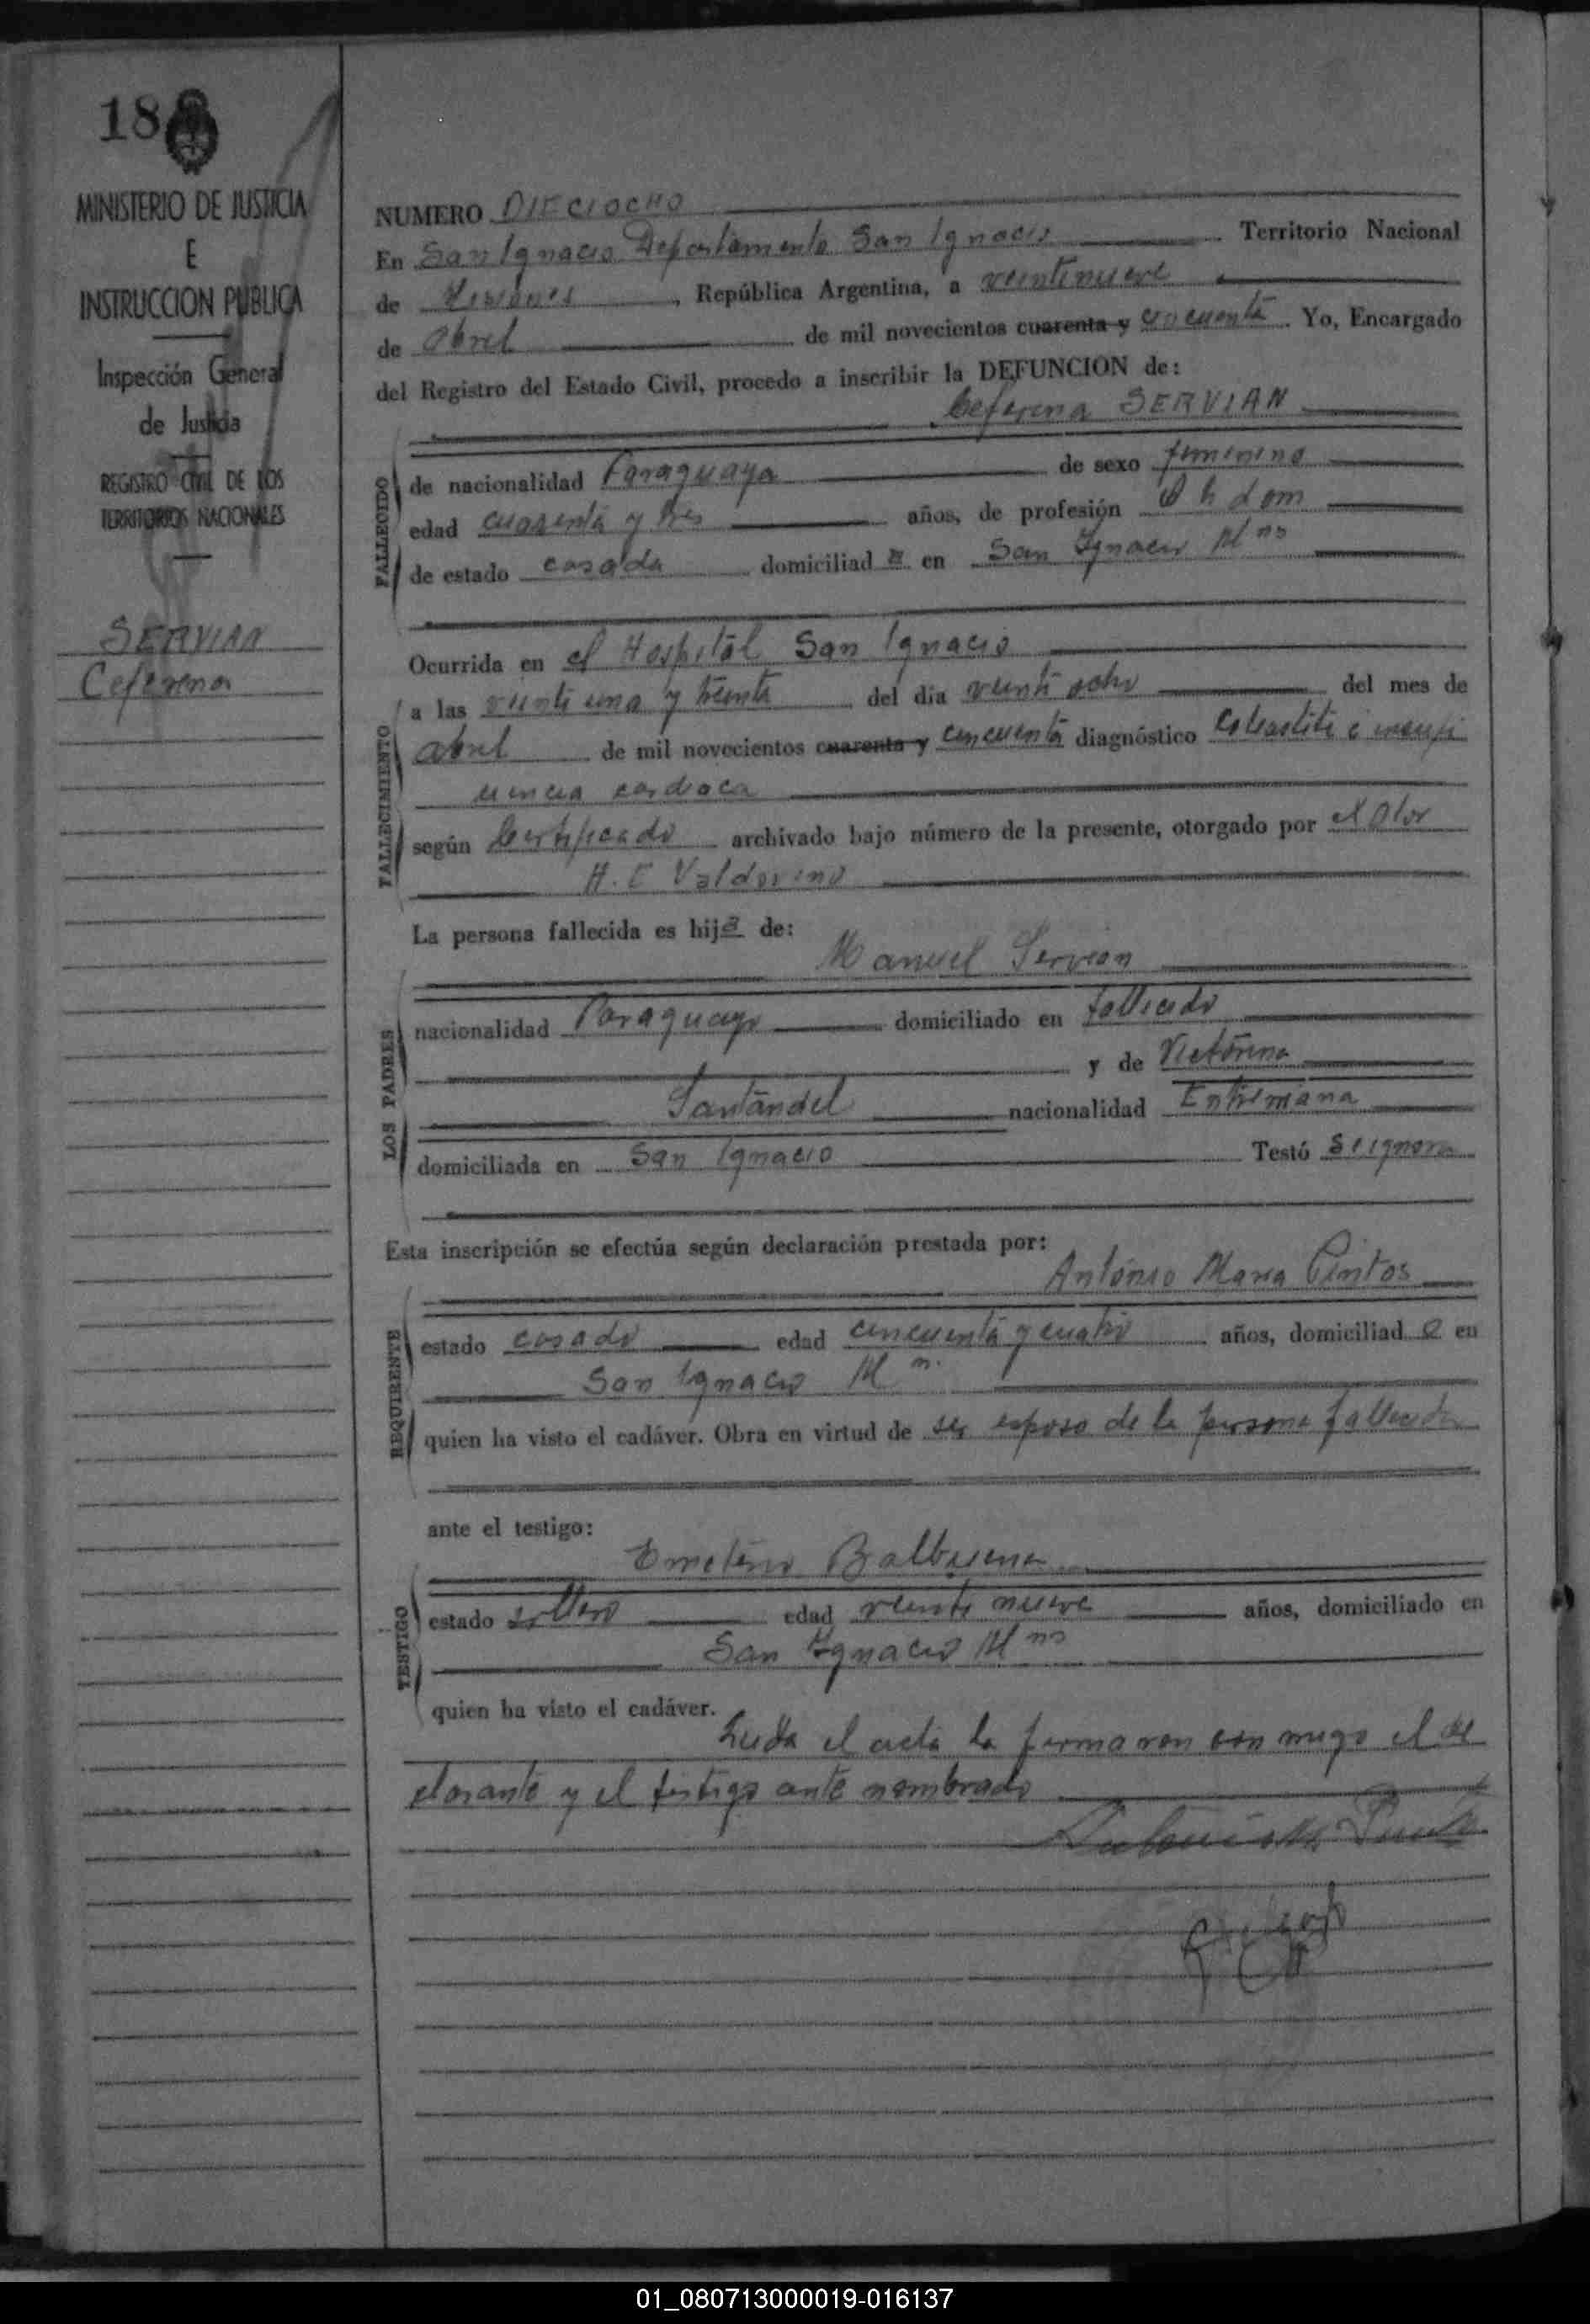 18
MINISTERIO DE JUSTICIA
E
INSTRUCCION PUBLICA
Inspección General
de Justicia
REGISTRO CIVIL DE LOS
TERRITORIOS NACIONALES
SERVIAN
Ceferena
NUMERO DIECIOCHO
En San Ignacio Departamento San Ignacio Territorio Nacional
de Misiones, República Argentina, a veintinueve
de Abril de mil novecientos cuarenta y cincuenta. Yo, Encargado
del Registro del Estado Civil, procedo a inscribir la DEFUNCION de:
Ceferena SERVIAN
FALLECIDO
de nacionalidad Paraguaya de sexo femenino
edad cuarenta y tres años, de profesión Q h dom
de estado casada domiciliada en San Ignacio Mnes
FALLECIMIENTO
Ocurrida en el Hospital San Ignacio
a las veinti una y treinta del día veinti ocho del mes de
abril de mil novecientos cuarenta y cincuenta diagnóstico
cardiaca
según Certificado archivado bajo número de la presente, otorgado por el Dtor
H. E Valdovino
La persona fallecida es hija de:
LOS PADRES
Manuel Servian
nacionalidad Paraguayo domiciliado en fallecido
y de Victorina
Santandel nacionalidad Entreriana
domiciliada en San Ignacio Testó Se ignora
Esta inscripción se efectúa según declaración prestada por:
REQUIRENTE
Antonio Maria Pintos
estado casado edad cincuenta y cuatro años, domiciliado en
San Ignacio M n.
quien ha visto el cadáver. Obra en virtud de ser esposo de la persona fallecida
ante el testigo:
TESTIGO
Emeterio Balbuena
estado soltero edad veinte nueve años, domiciliado en
San Ignacio Mnes
quien ha visto el cadáver.
Leida el acta la firmaron con migo el de
clarante y el testigo ante nombrado
01_080713000019-016137